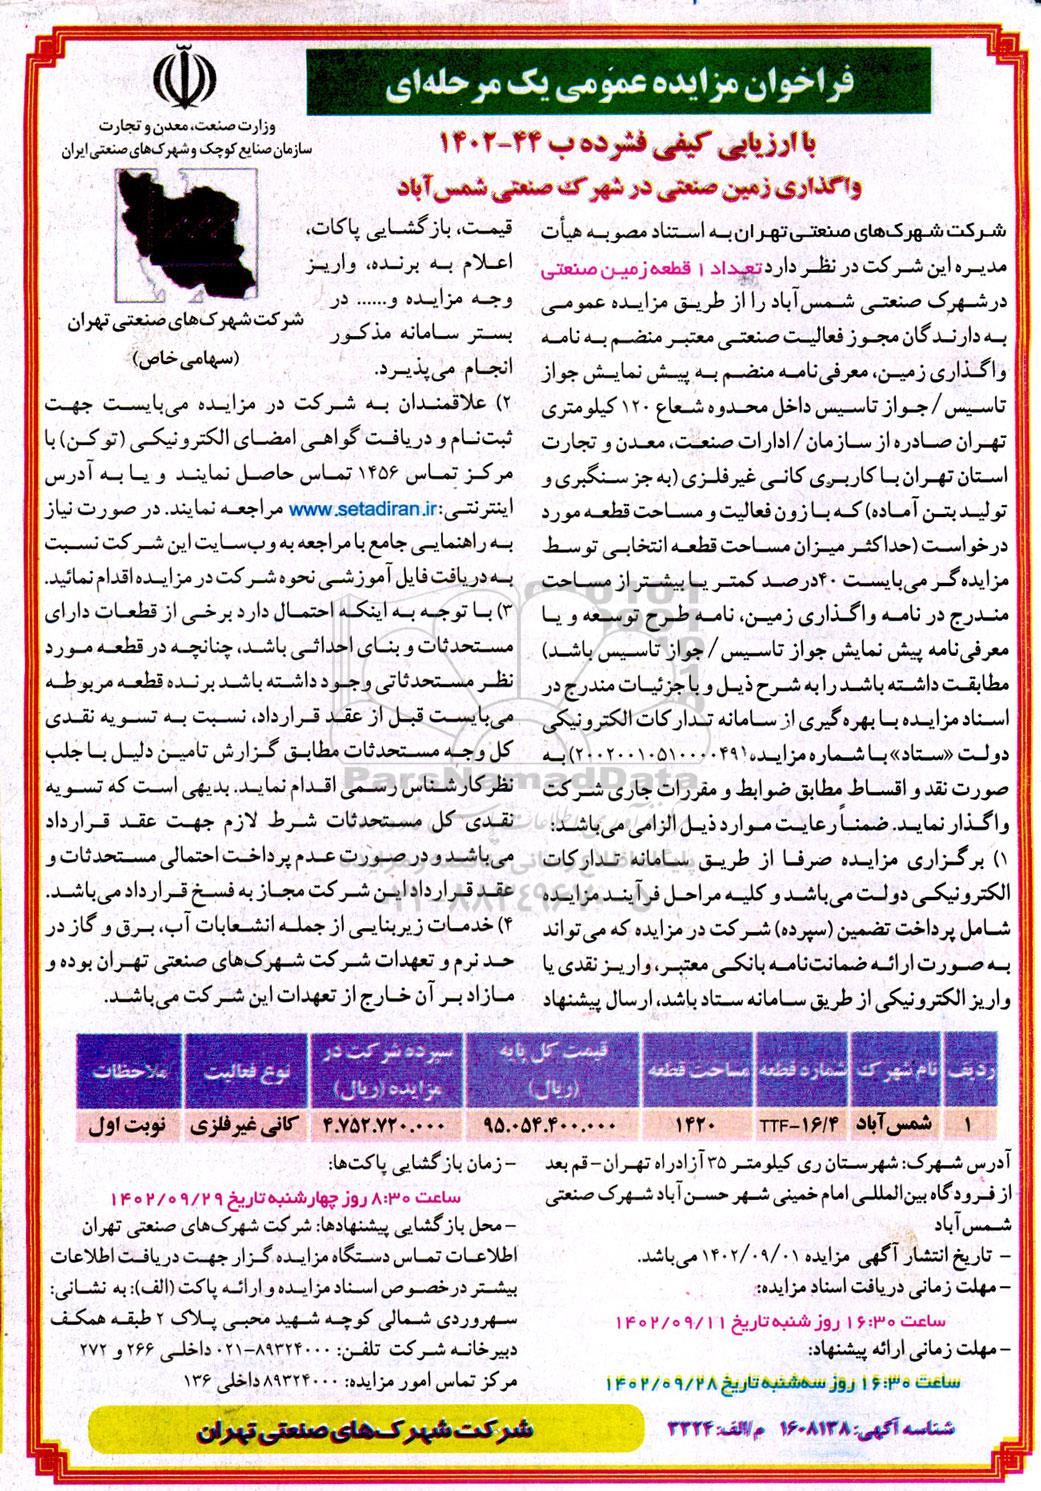 فراخوان مزایده عمومی یک مرحله‌ای
با ارزیابی کیفی فشرده ب ۴۴-۱۴۰۲
واگذاری زمین صنعتی در شهرک صنعتی شمس‌آباد
وزارت صنعت، معدن و تجارت
سازمان صنایع کوچک و شهرک‌های صنعتی ایران
شرکت شهرک‌های صنعتی تهران
(سهامی خاص)
شرکت شهرک‌های صنعتی تهران به استناد مصوبه هیأت
مدیره این شرکت در نظر دارد تعداد ۱ قطعه زمین صنعتی
در شهرک صنعتی شمس‌آباد را از طریق مزایده عمومی
به دارندگان مجوز فعالیت صنعتی معتبر منضم به نامه
واگذاری زمین، معرفی‌نامه منضم به پیش نمایش جواز
تاسیس / جواز تاسیس داخل محدوده شعاع ۱۲۰ کیلومتری
تهران صادره از سازمان / ادارات صنعت، معدن و تجارت
استان تهران با کاربری کانی غیرفلزی (به جز سنگبری و
تولید بتن آماده) که با زون فعالیت و مساحت قطعه مورد
درخواست (حداکثر میزان مساحت قطعه انتخابی توسط
مزایده‌گر می‌بایست ۴۰درصد کمتر یا بیشتر از مساحت
مندرج در نامه واگذاری زمین، نامه طرح توسعه و یا
معرفی‌نامه پیش نمایش جواز تاسیس / جواز تاسیس باشد)
مطابقت داشته باشد را به شرح ذیل و با جزئیات مندرج در
اسناد مزایده با بهره‌گیری از سامانه تدارکات الکترونیکی
دولت «ستاد» با شماره مزایده (۲۰۰۲۰۰۱۰۵۱۰۰۰۰۴۹۱) به
صورت نقد و اقساط مطابق ضوابط و مقررات جاری شرکت
واگذار نماید. ضمناً رعایت موارد ذیل الزامی می‌باشد:
۱) برگزاری مزایده صرفا از طریق سامانه تدارکات
الکترونیکی دولت می‌باشد و کلیه مراحل فرآیند مزایده
شامل پرداخت تضمین (سپرده) شرکت در مزایده که می‌تواند
به صورت ارائه ضمانت‌نامه بانکی معتبر، واریز نقدی یا
واریز الکترونیکی از طریق سامانه ستاد باشد، ارسال پیشنهاد
قیمت، بازگشایی پاکات،
اعلام به برنده، واریز
وجه مزایده و...... در
بستر سامانه مذکور
انجام می‌پذیرد.
۲) علاقمندان به شرکت در مزایده می‌بایست جهت
ثبت‌نام و دریافت گواهی امضای الکترونیکی (توکن) با
مرکز تماس ۱۴۵۶ تماس حاصل نمایند و یا به آدرس
اینترنتی: www.setadiran.ir مراجعه نمایند. در صورت نیاز
به راهنمایی جامع با مراجعه به وب‌سایت این شرکت نسبت
به دریافت فایل آموزشی نحوه شرکت در مزایده اقدام نمائید.
۳) با توجه به اینکه احتمال دارد برخی از قطعات دارای
مستحدثات و بنای احداثی باشد، چنانچه در قطعه مورد
نظر مستحدثاتی وجود داشته باشد برنده قطعه مربوطه
می‌بایست قبل از عقد قرارداد، نسبت به تسویه نقدی
کل وجه مستحدثات مطابق گزارش تامین دلیل با جلب
نظر کارشناس رسمی اقدام نماید. بدیهی است که تسویه
نقدی کل مستحدثات شرط لازم جهت عقد قرارداد
می‌باشد و در صورت عدم پرداخت احتمالی مستحدثات و
عقد قرارداد این شرکت مجاز به فسخ قرارداد می‌باشد.
۴) خدمات زیربنایی از جمله انشعابات آب، برق و گاز در
حد نرم و تعهدات شرکت شهرک‌های صنعتی تهران بوده و
مازاد بر آن خارج از تعهدات این شرکت می‌باشد.
ParsNamadData
ردیف نام شهرک شماره قطعه مساحت قطعه قیمت کل پایه (ریال) سپرده شرکت در مزایده (ریال) نوع فعالیت ملاحظات
۱ شمس‌آباد TTF-۱۶/۴ ۱۴۲۰ ۹۵.۰۵۴.۴۰۰.۰۰۰ ۴.۷۵۲.۷۲۰.۰۰۰ کانی غیرفلزی نوبت اول
آدرس شهرک: شهرستان ری کیلومتر ۳۵ آزادراه تهران - قم بعد
از فرودگاه بین‌المللی امام خمینی شهر حسن‌آباد شهرک صنعتی
شمس‌آباد
- تاریخ انتشار آگهی مزایده ۱۴۰۲/۰۹/۰۱ می‌باشد.
- مهلت زمانی دریافت اسناد مزایده:
ساعت ۱۶:۳۰ روز شنبه تاریخ ۱۴۰۲/۰۹/۱۱
- مهلت زمانی ارائه پیشنهاد:
ساعت ۱۶:۳۰ روز سه‌شنبه تاریخ ۱۴۰۲/۰۹/۲۸
- زمان بازگشایی پاکت‌ها:
ساعت ۸:۳۰ روز چهارشنبه تاریخ ۱۴۰۲/۰۹/۲۹
- محل بازگشایی پیشنهادها: شرکت شهرک‌های صنعتی تهران
اطلاعات تماس دستگاه مزایده‌گزار جهت دریافت اطلاعات
بیشتر در خصوص اسناد مزایده و ارائه پاکت (الف): به نشانی:
سهروردی شمالی کوچه شهید محبی پلاک ۲ طبقه همکف
دبیرخانه شرکت تلفن: ۸۹۳۲۴۰۰۰-۰۲۱ داخلی ۲۶۶ و ۲۷۲
مرکز تماس امور مزایده: ۸۹۳۲۴۰۰۰ داخلی ۱۳۶
شناسه آگهی: ۱۶۰۸۱۳۸ م/الف: ۳۳۲۴
شرکت شهرک‌های صنعتی تهران